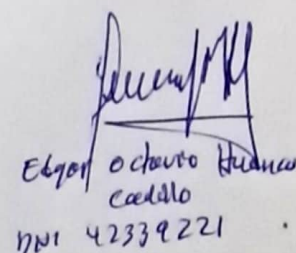 Edgar Octavio Huanca
Cadillo
DNI 42339221